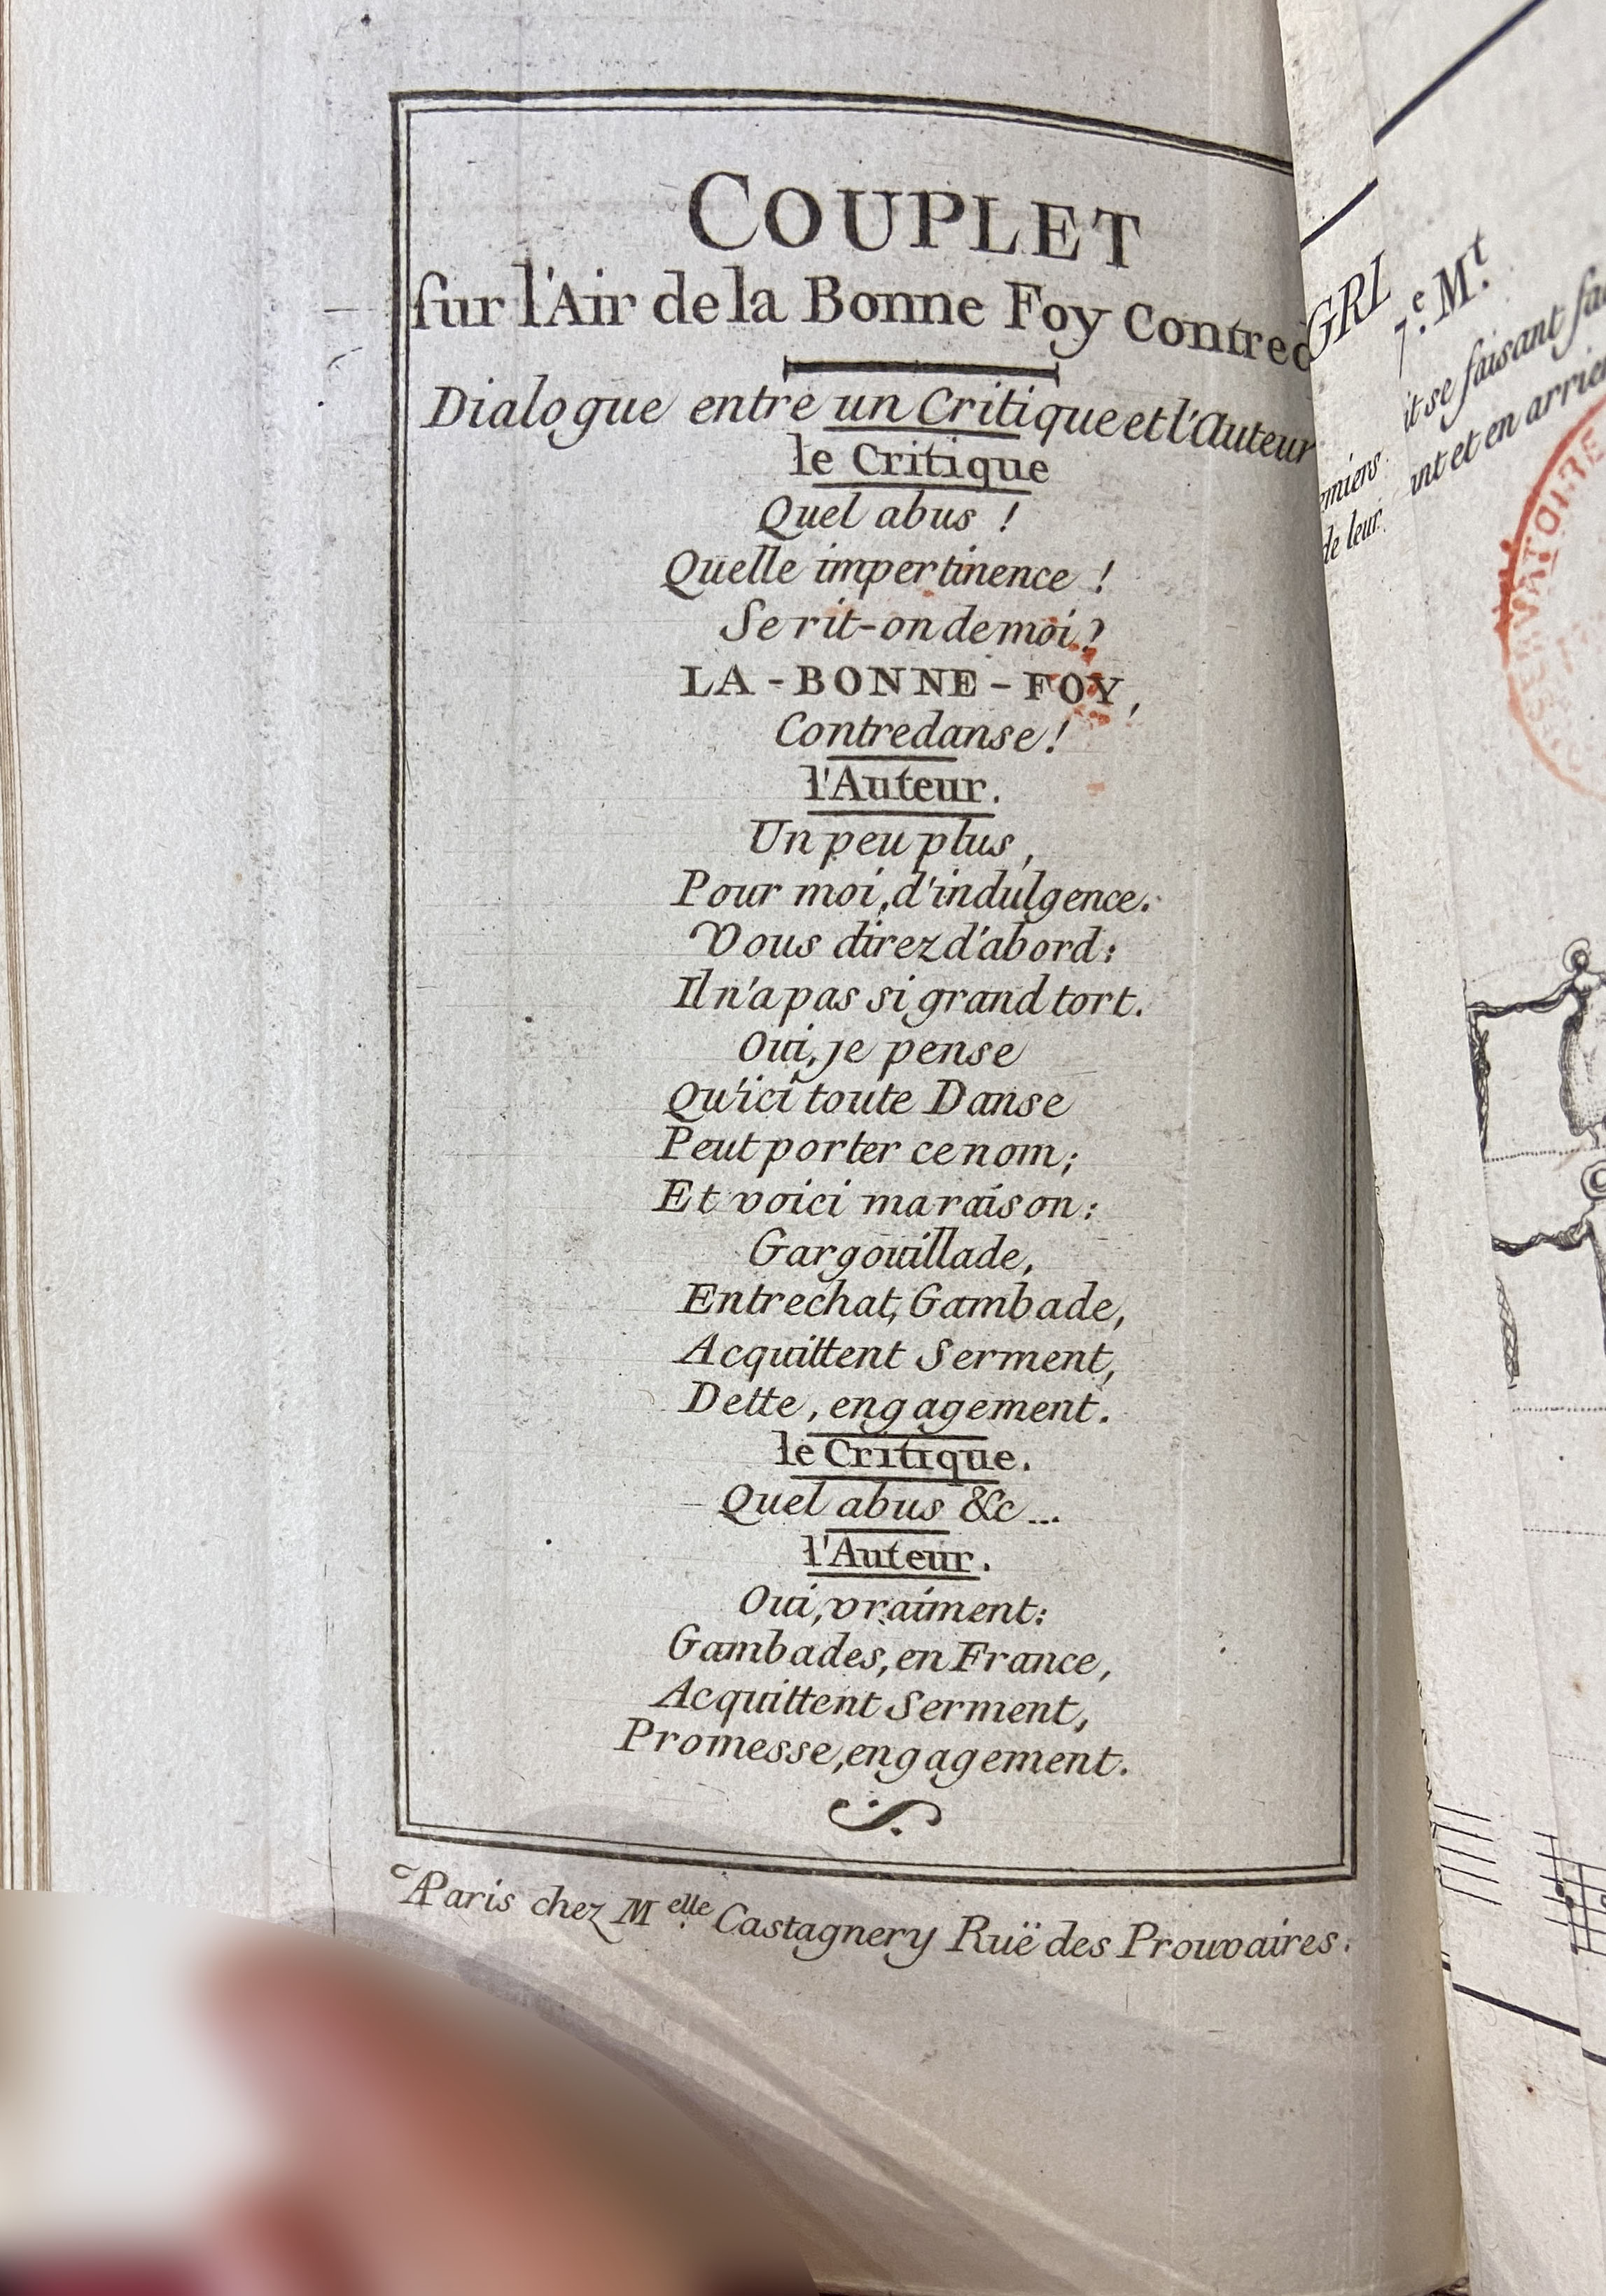 COUPLET
sur l'Air de la Bonne Foy Contred
Dialogue entre un Critique et l'Auteur
le Critique
Quel abus !
Quelle impertinence !
Se rit-on de moi ?
LA-BONNE-FOY,
Contredanse !
l'Auteur.
Un peu plus,
Pour moi, d'indulgence.
Vous direz d'abord :
Il n'a pas si grand tort.
Oui, je pense
Qu'ici toute Danse
Peut porter ce nom ;
Et voici ma raison :
Gargouillade,
Entrechat, Gambade,
Acquittent Serment,
Dette, engagement.
le Critique.
Quel abus &c...
l'Auteur.
Oui, vraiment :
Gambades, en France,
Acquittent Serment,
Promesse, engagement.
A Paris chez Melle Castagnery Ruë des Prouvaires.
GRI
7.e Mt.
it se faisant
nt et en
miers
de leur